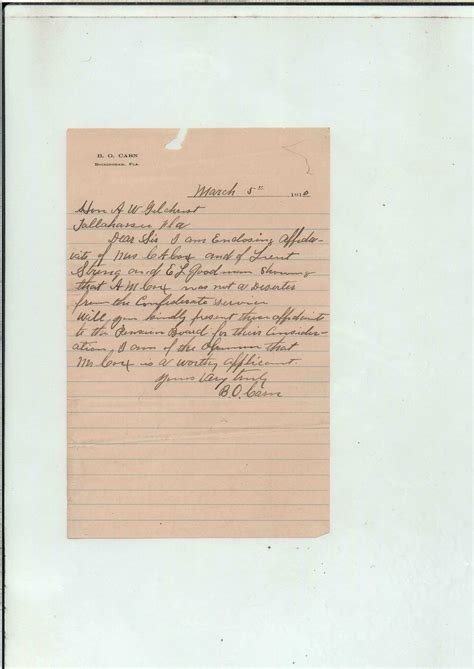 B. O. CARN
March 5th 1910
Hon A W Gilchrist
Tallahassee Fla
Dear Sir I am Enclosing affida-
vits of Mrs C A Cox and of
and E L Goodman Showing
that A M Cox was not a Deserter
from the Confederate service
Will you kindly present these affidavit
to the Pension Board for their Consider-
ation, I am of the Opinion that
Mr Cox is a worthy applicant.
Yours Very truly
B. O. Carn